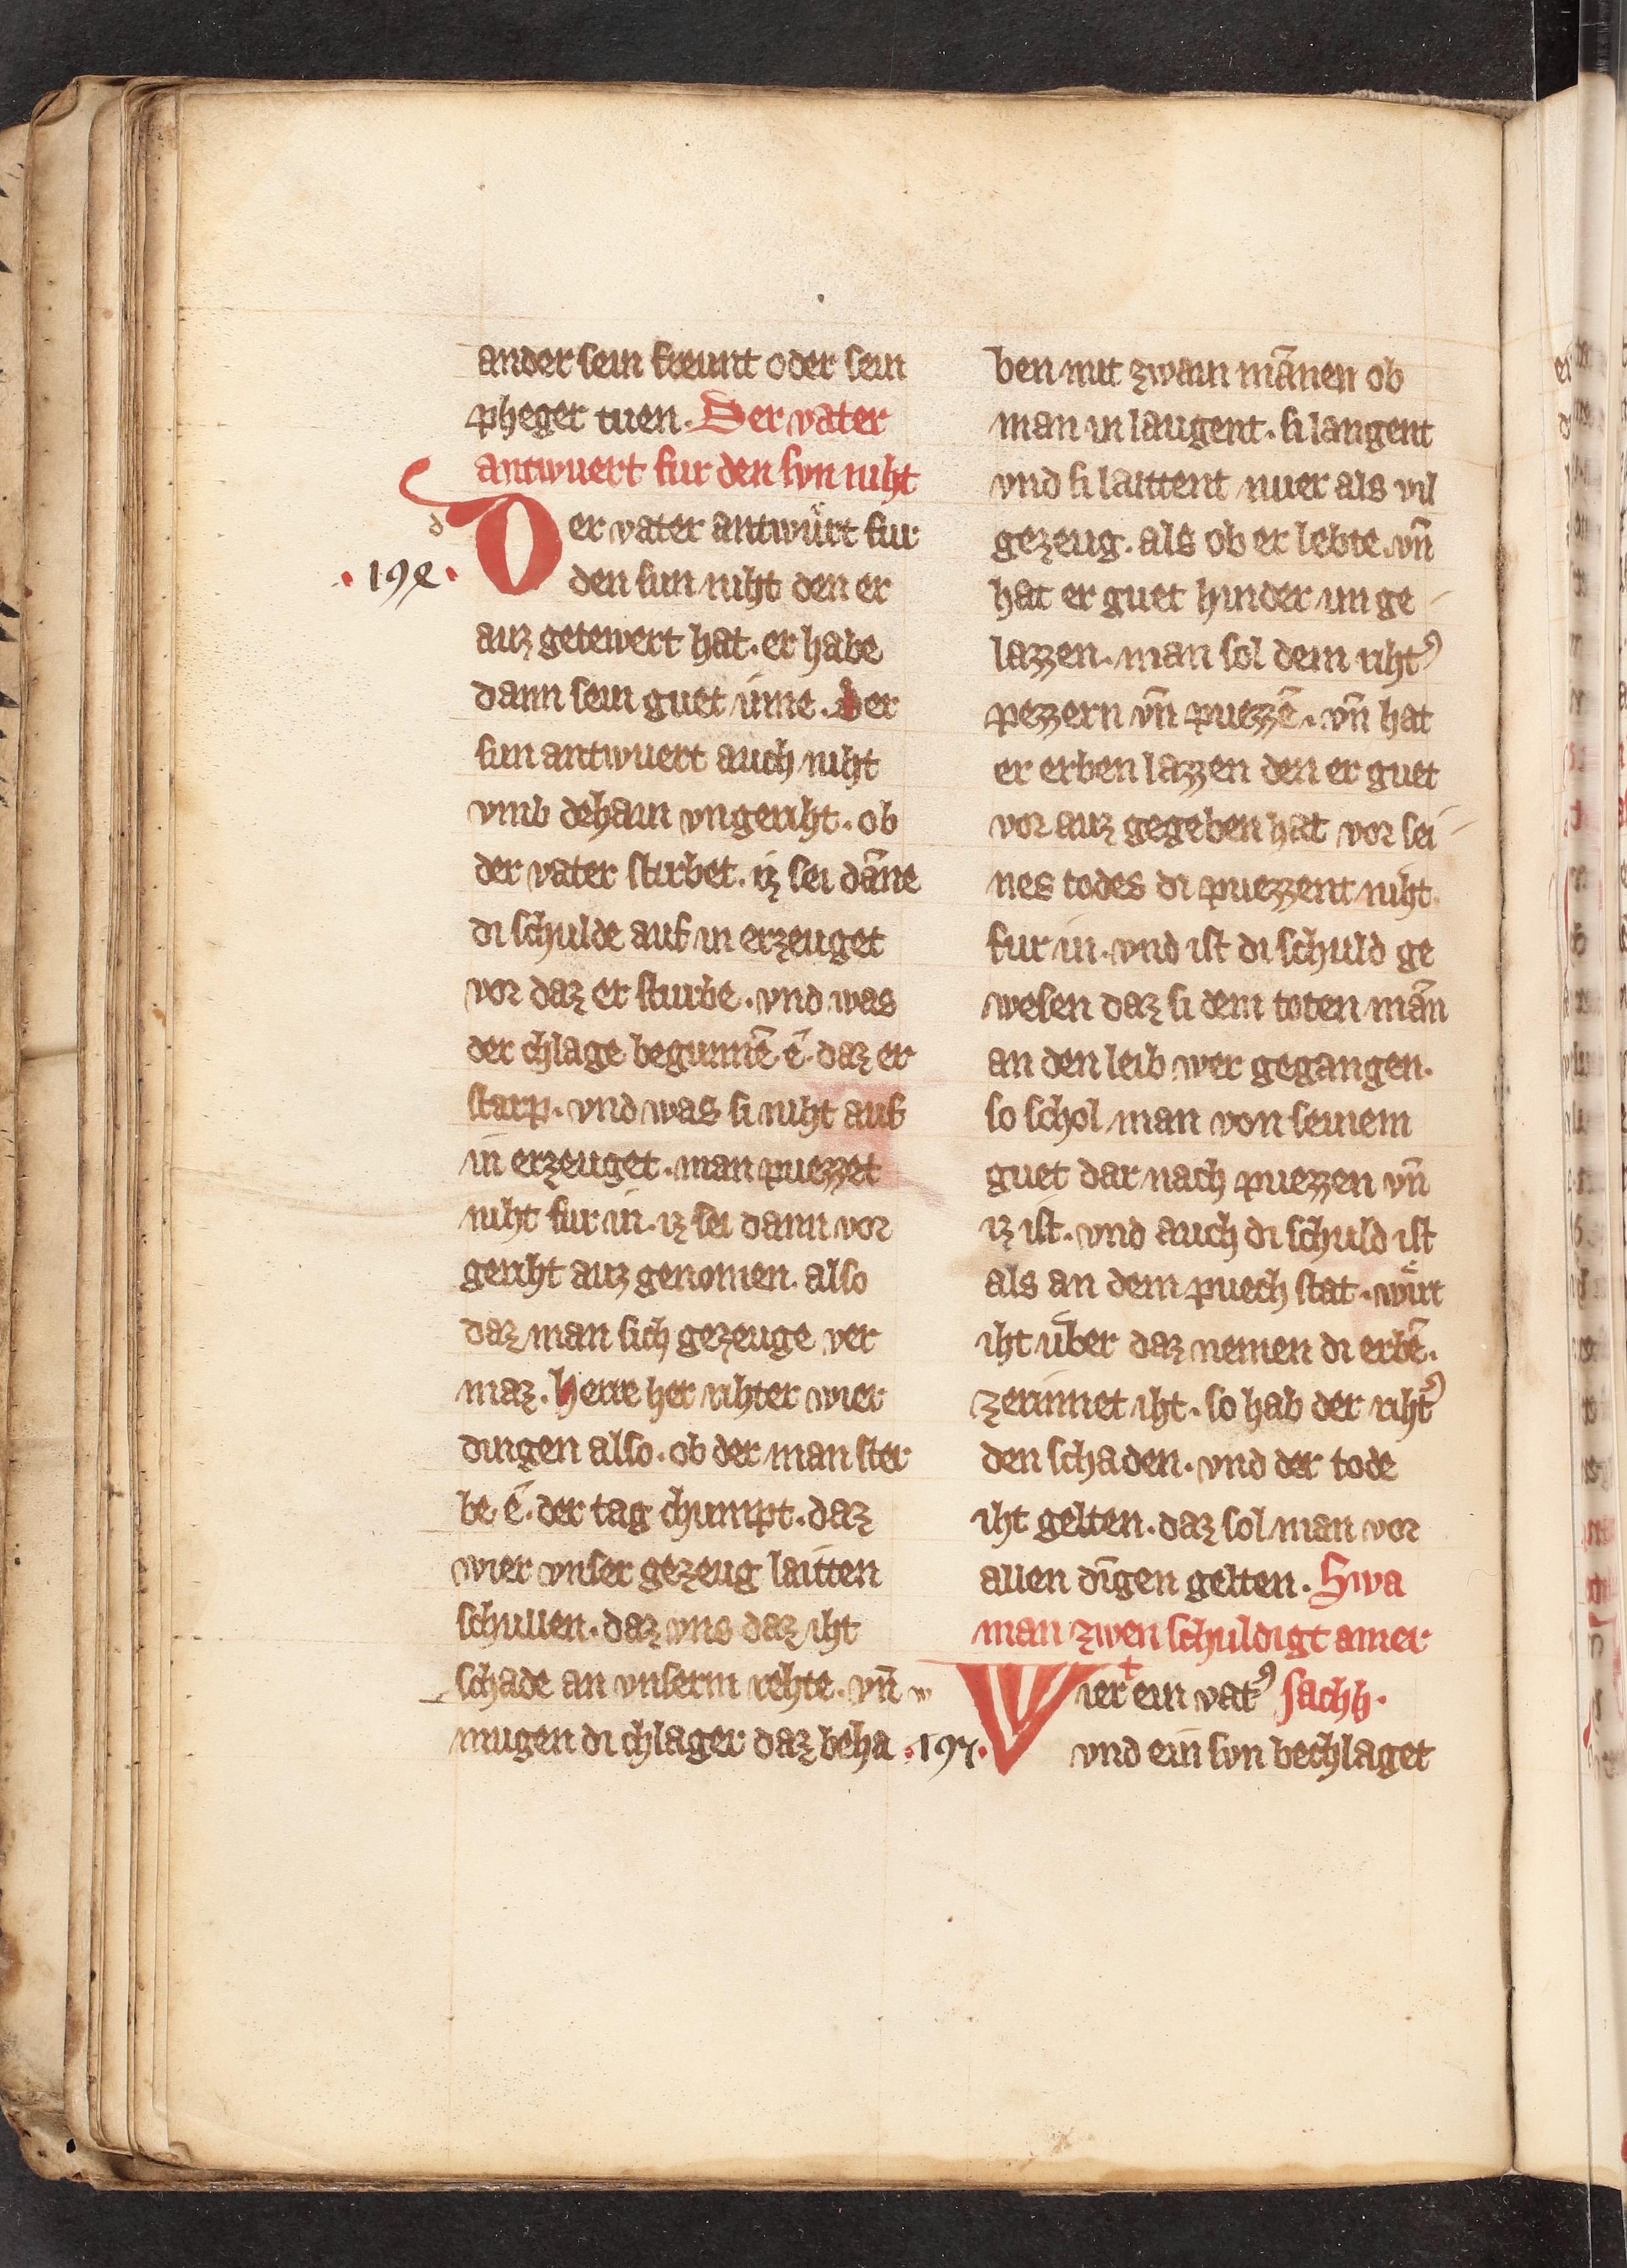 ander sein freunt oder sein
phleger tuen. Der vater
antwuert fur den svn niht
d
Der vater antwuͤrt fur
·194·
den sun niht den er
auz gestewert hat. er habe
dann sein guet inne. Der
sun antwuert auch niht
vmb dehain vngeriht. ob
der vater stirbet. iz sei dāne
di schulde auf in erzeuget
vor daz er sturbe. vnd was
der chlage begunnē. ē. daz er
starp. vnd was si niht auf
in erzeuget. man puezzet
niht fur in. iz sei dann vor
geriht auz genomen. also
daz man sich gezeuge ver
maz. Herre her rihter wier
dingen also. ob der man ster
be. ē. der tag chumpt. daz
wier vnser gezeug laitten
schullen. daz vns daz iht
schade an vnserm rehte. vn̄
mugen di chlager daz beha
ben mit zwain mānen ob
man in laugent. si laugent
vnd si laittent nuer als vil
gezeug. als ob er lebte. vn̄
hat er guet hinder im ge
lazzen. man sol dem riht᾽
pezzern vn̄ puezzē. vn̄ hat
er erben lazzen den er guet
vor auz gegeben hat vor sei
nes todes di puezzent niht
fur in. vnd ist di schuld ge
wesen daz si dem toten mān
an den leib wer gegangen.
so schol man von seinem
guet dar nach puezzen vn̄
iz ist. vnd auch di schuld ist
als an dem puech stat. wuͤrt
iht über daz nemen di erbē.
zerinnet iht. so hab der riht᾽
den schaden. vnd der tode
iht gelten. daz sol man vor
allen dīgen gelten. Swa
man zwen schuldigt ainer
w
Wier ein vat᾽ sachh.
·197·
vnd ein svn bechlaget